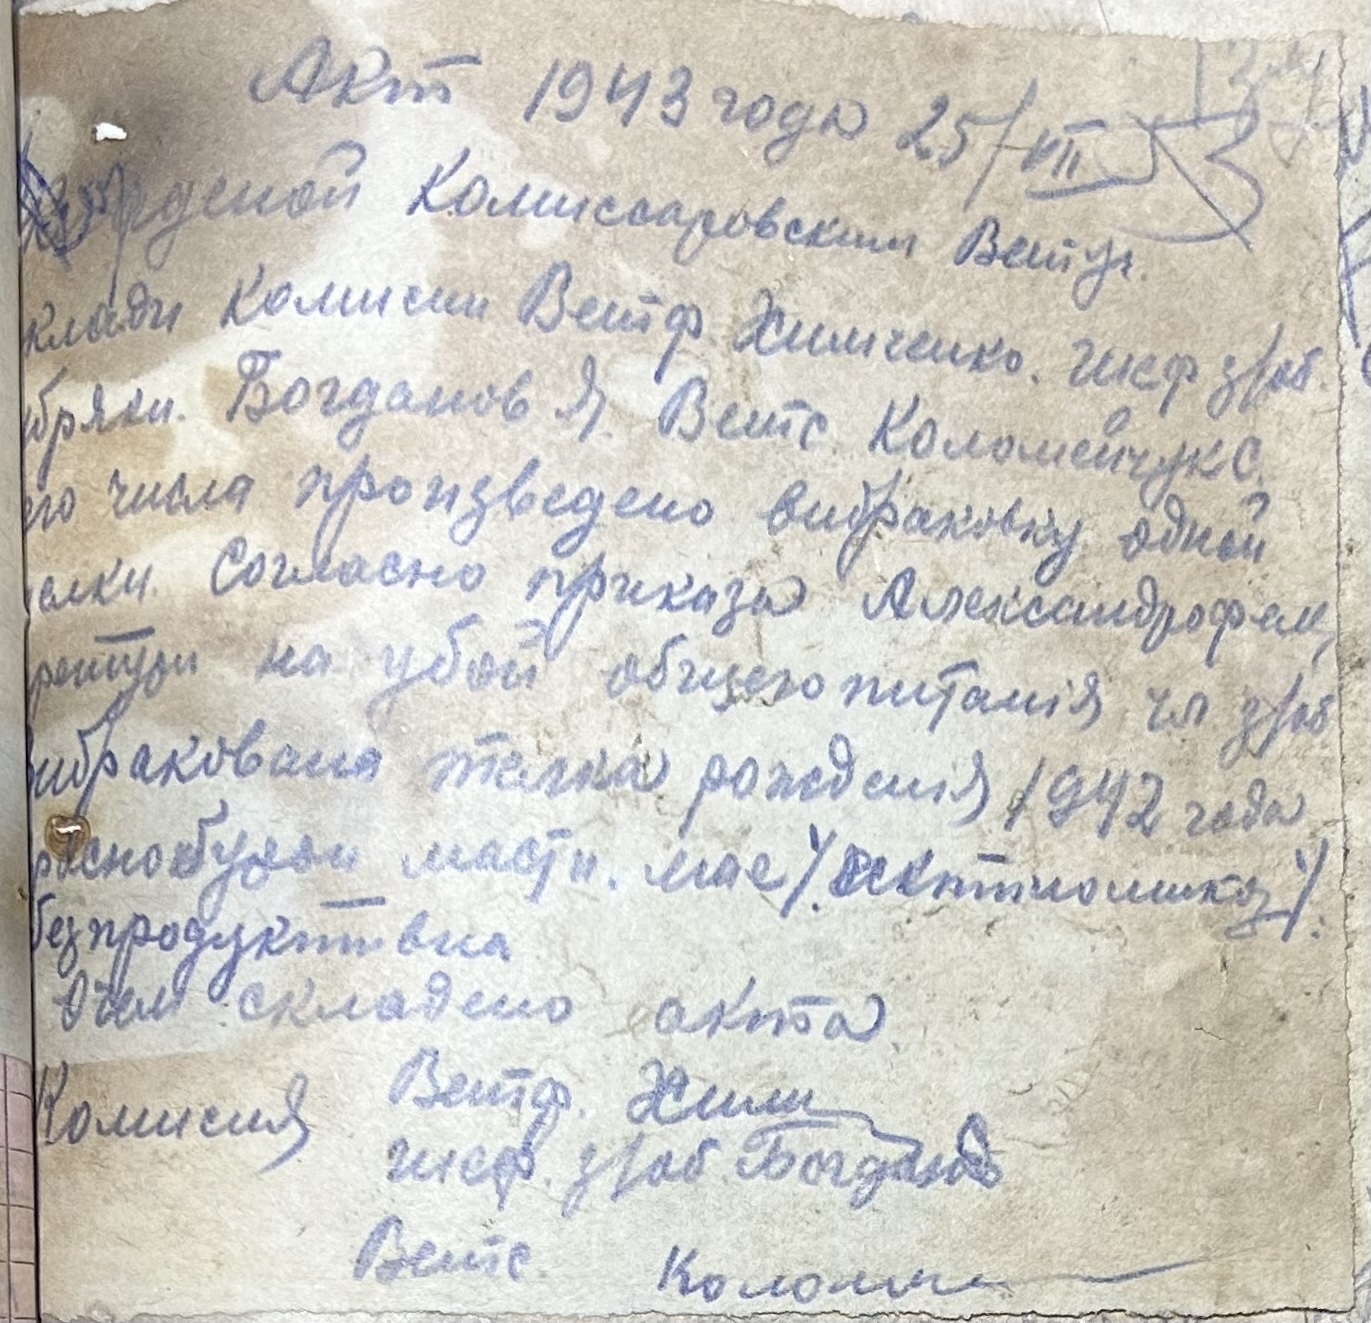 Акт 1943 года 25/VII
Комиссаровским Ветуч.
клади Комисии Ветф. Химченко. шеф з/об.
Богданов Я. Ветс Коломейчук С.
его числа произведено вибраковку одной
елки. Согласно приказа
на убой общего питанія чл з/об
вибракована телка рожденія 1942 года
раснобурой масти. мае
безпродуктивна
Очем складено акта.
Комисия Ветф. Химч
шеф. з/об. Богданов
Ветс. Коломы